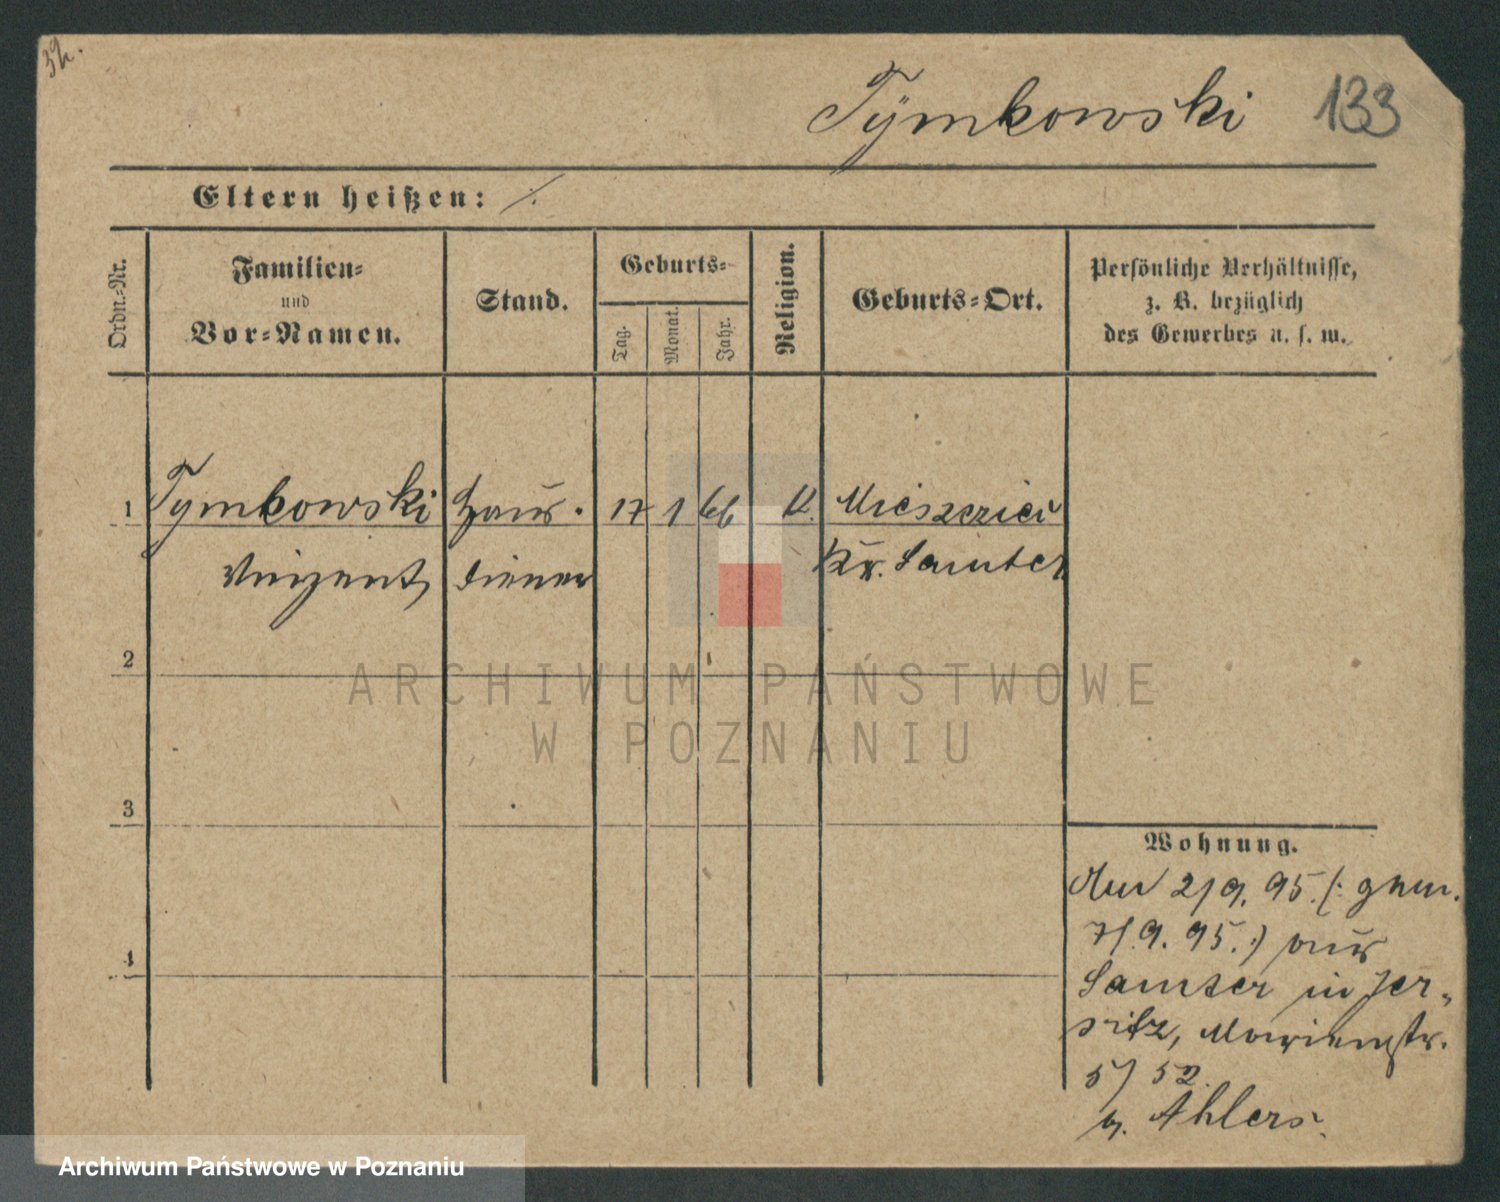 32.
Tymkowski 133
Eltern heißen: ./.
Ordn.-Nr. Familien- und Vor-Namen. Stand. Geburts- Tag. Monat. Jahr. Religion. Geburts-Ort. Persönliche Verhältnisse, z. B. bezüglich des Gewerbes u. s. w.
1 Tymkowski Haus- 17 1 66 K.
Vinzent diener Kr. Samter
2
3
4
Wohnung.
Am 2/9. 95. (: gem.
7/.9. 95. :) aus
Samter in Jer-
sitz, Marienstr.
5/52.
b. Ahlers.
ARCHIWUM PAŃSTWOWE
W POZNANIU
Archiwum Państwowe w Poznaniu